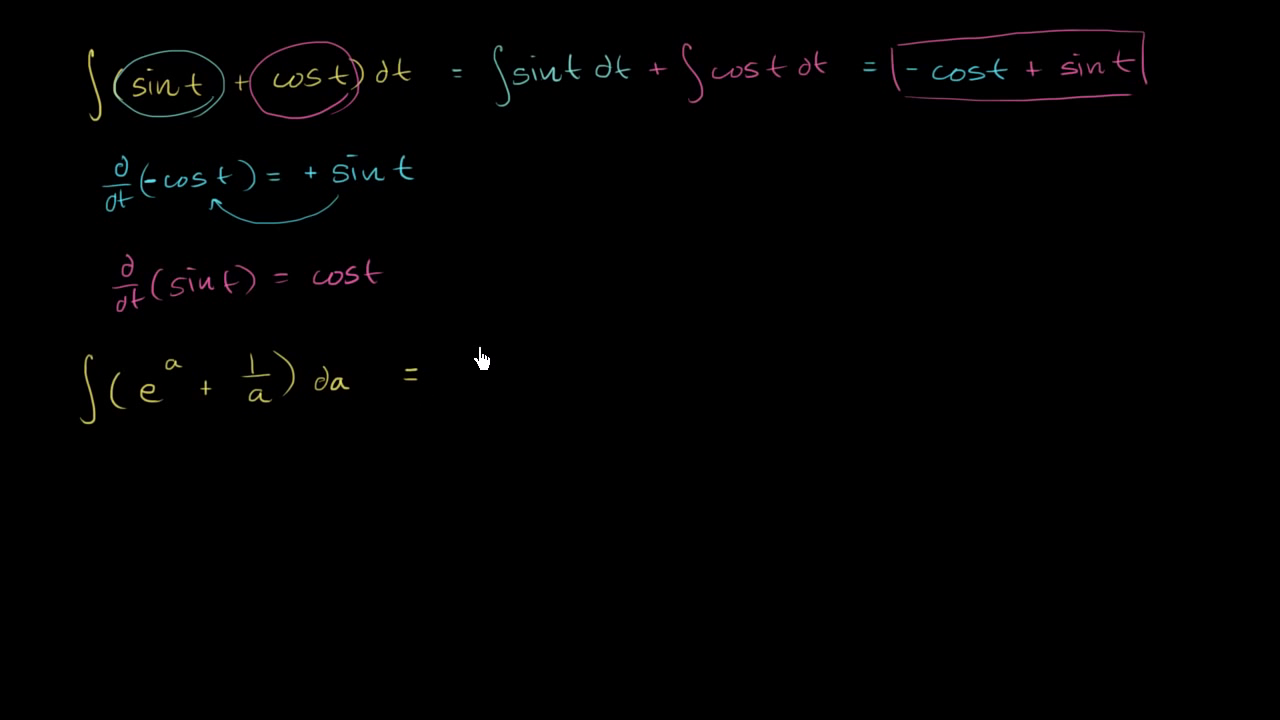 ∫(sin t + cos t) dt = ∫sin t dt + ∫cos t dt = - cos t + sin t
d/dt (-cos t) = + sin t
d/dt (sin t) = cos t
∫(e^a + 1/a) da =